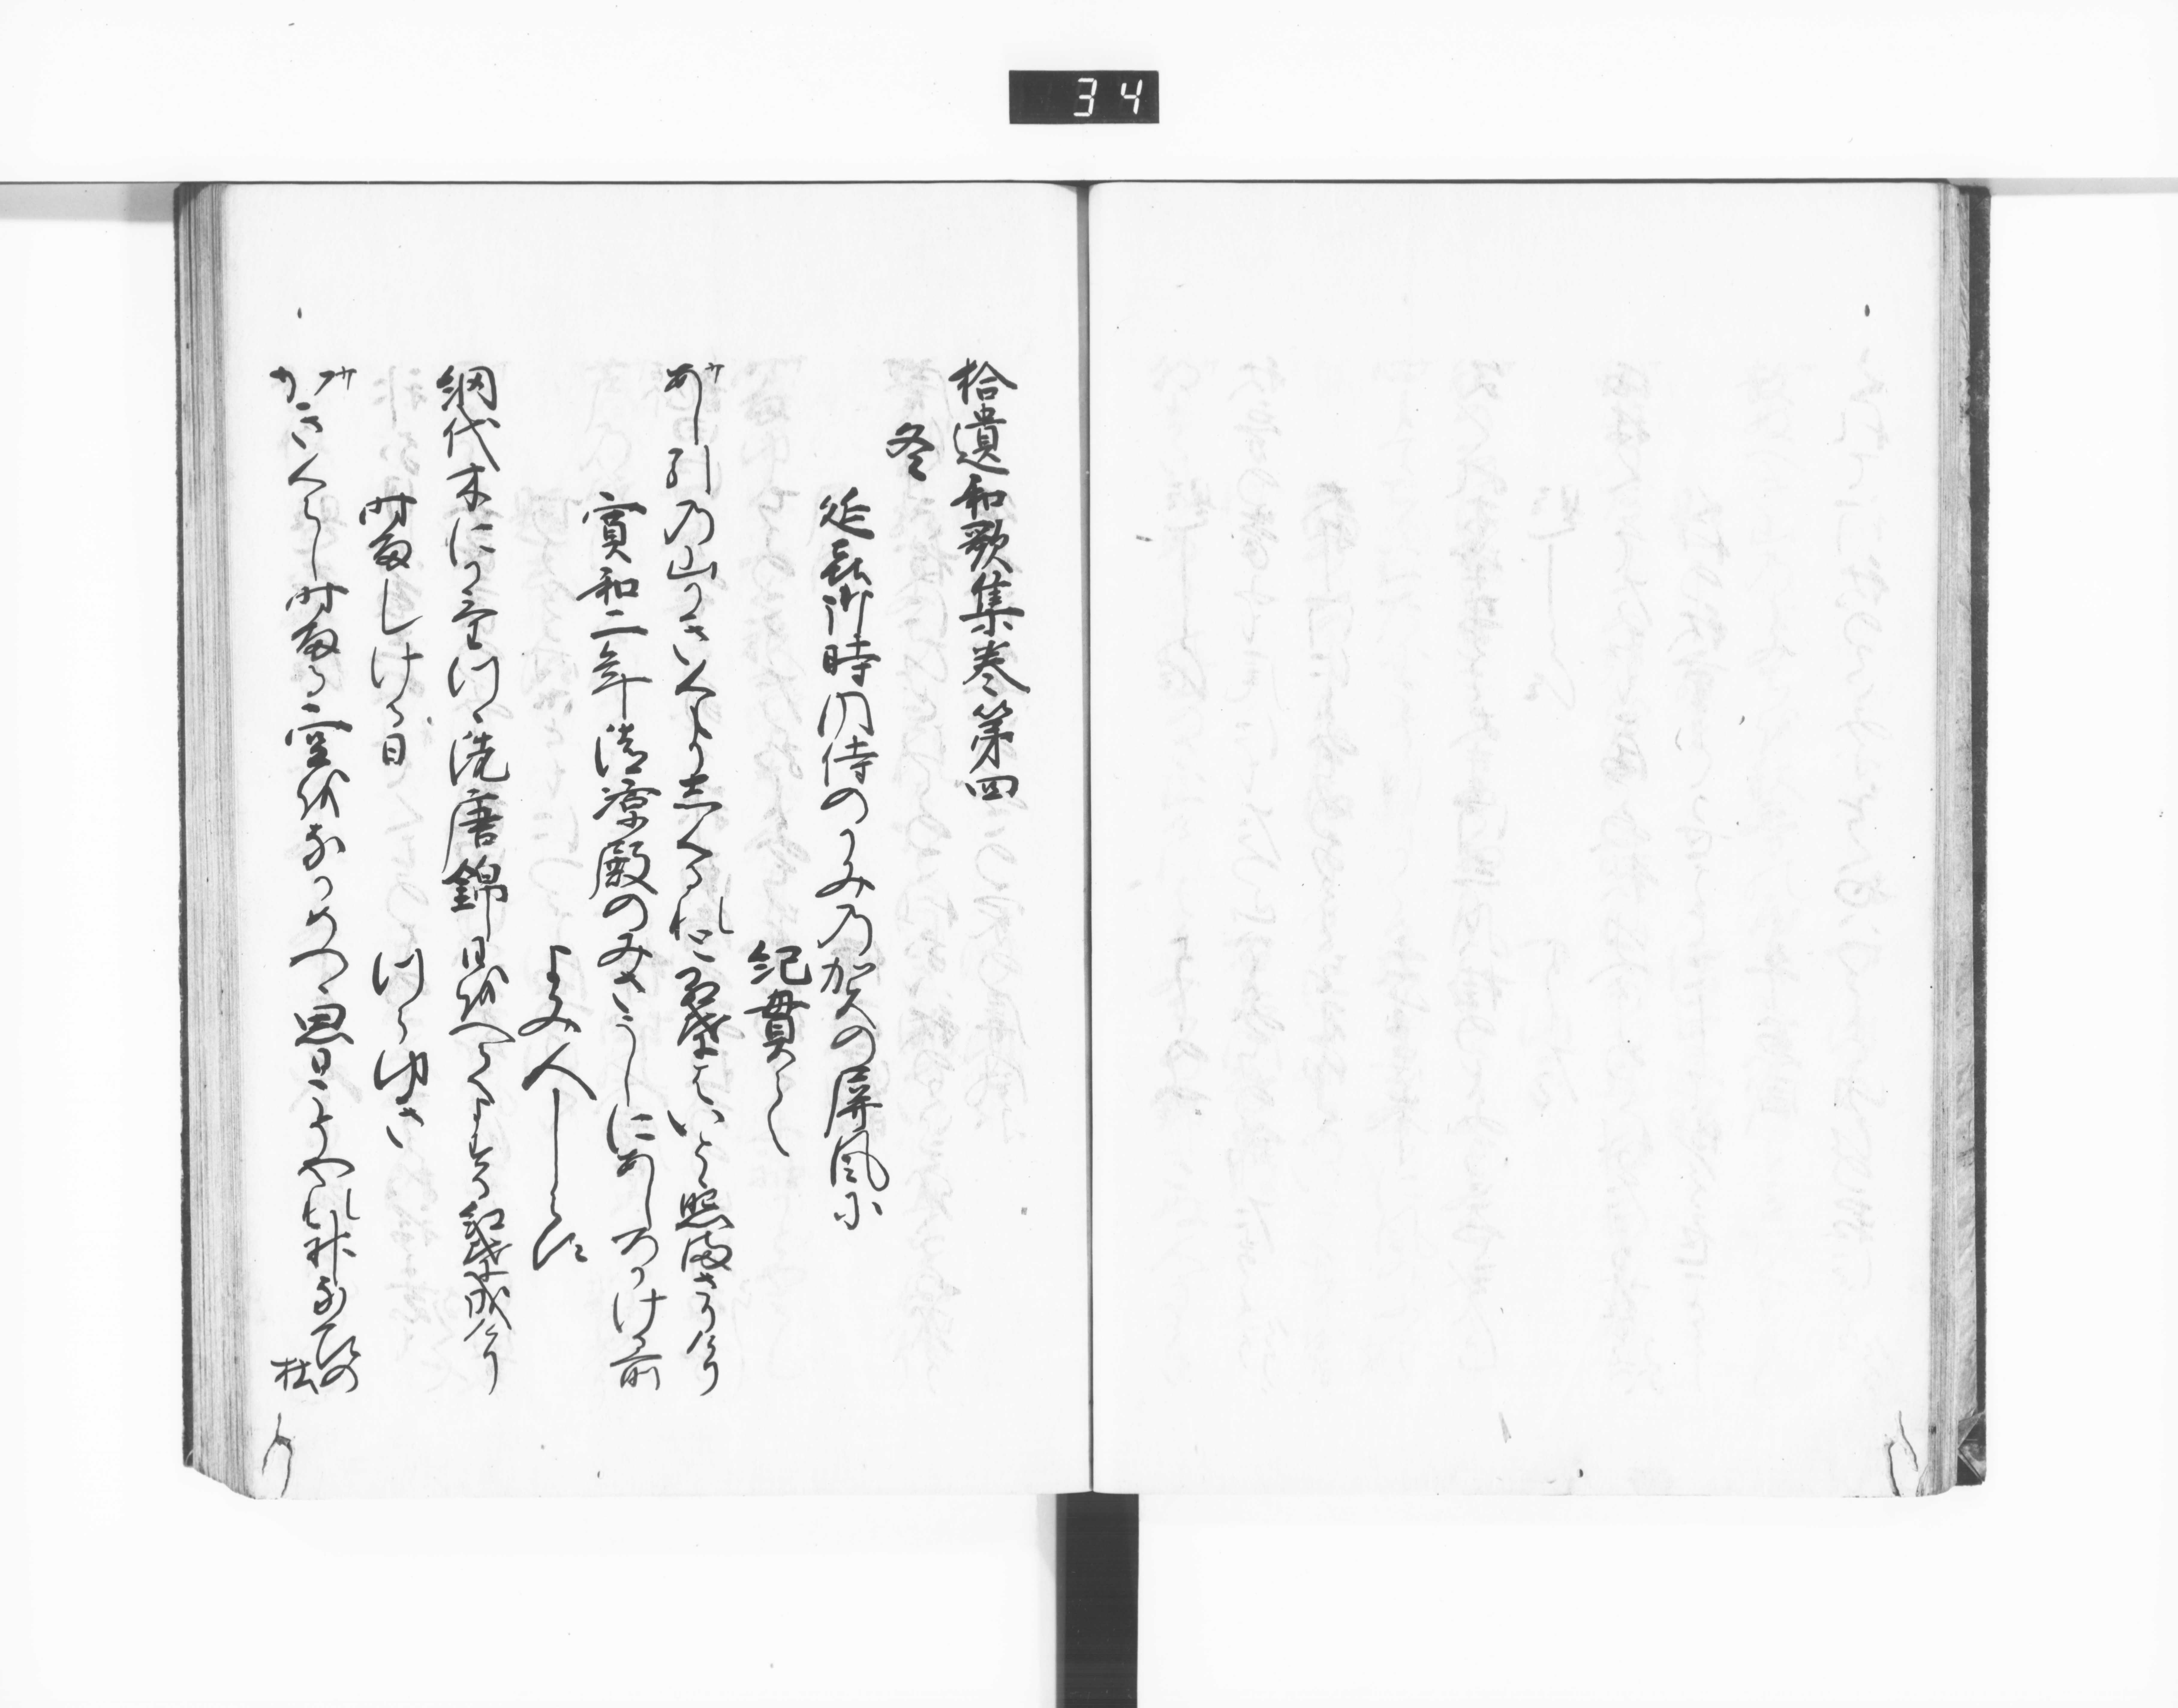 34
拾遺和歌集巻第四
冬
延㐂御時内侍のかみの賀の屏風に
紀貫之
あし引の山かきくもりしくるれと紅葉はいとゝ照まさりけり
寛和二年清涼殿のみさうしにあしろかける所
よみ人しらす
網代木にかけつゝ洗唐錦日をへてよする紅葉成けり
時雨しける日
つらゆき
かきくらし時雨る空をなかめつゝ思ひこそやれ神なひの
杜